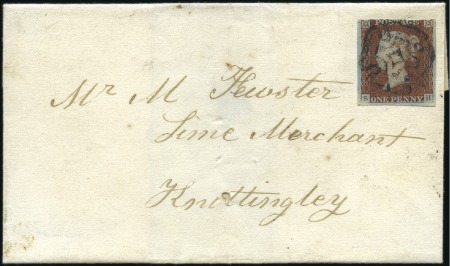 POSTAGE
ONE PENNY
Mr M Hewster
Lime Merchant
Knottingley